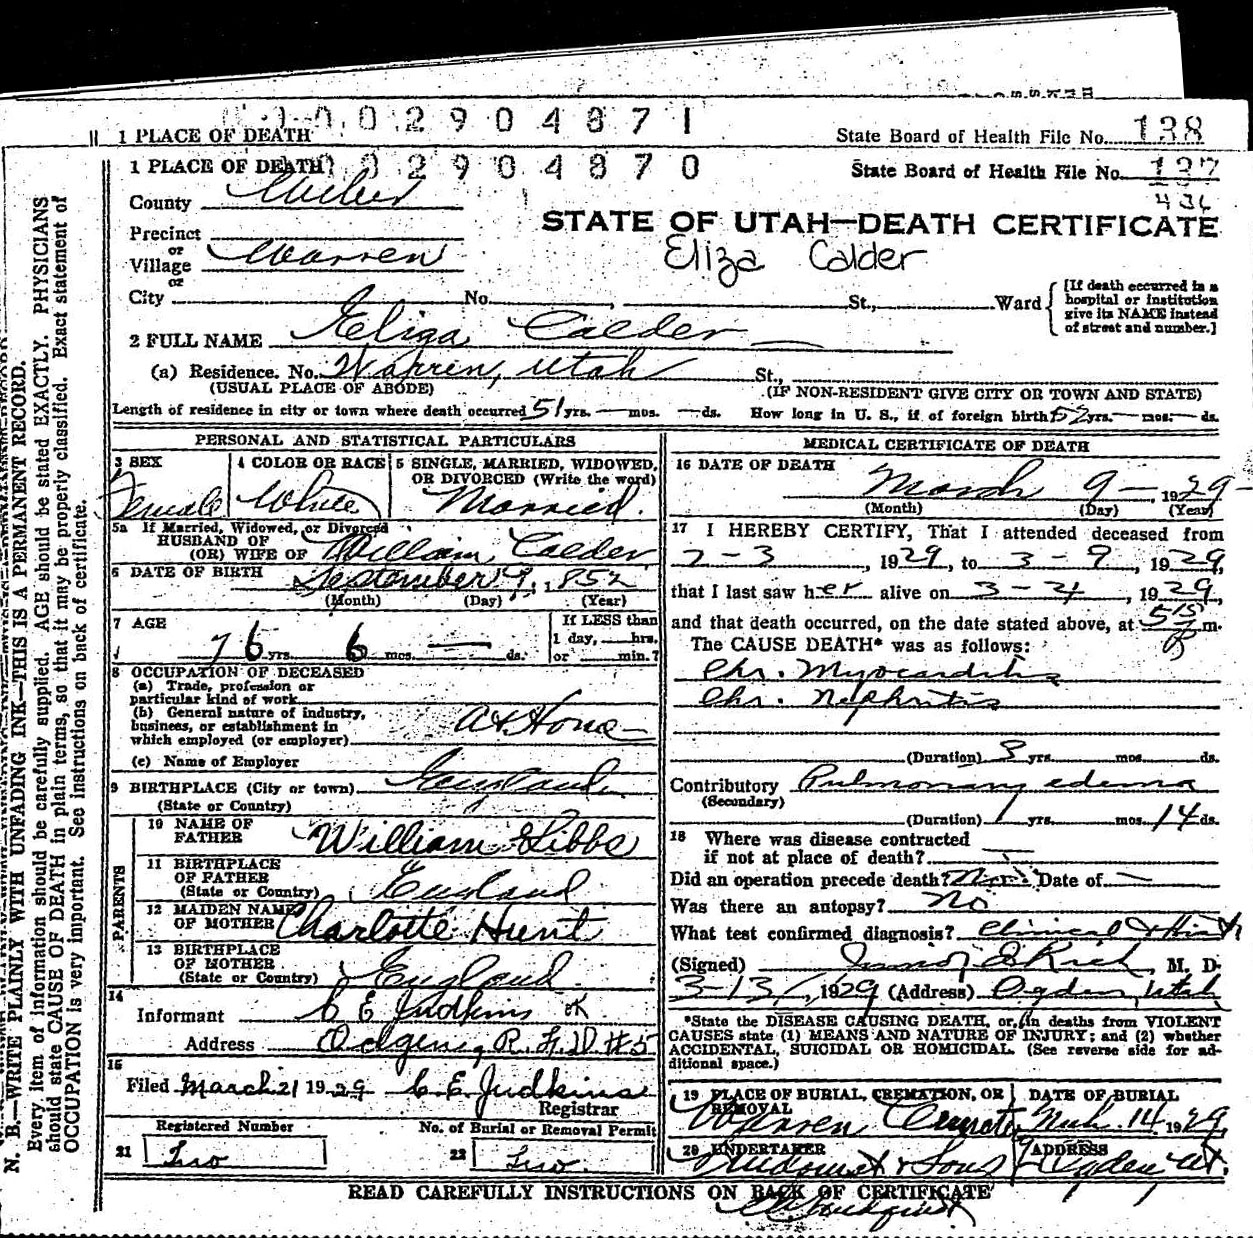 1 PLACE OF DEATH 0002904871 State Board of Health File No. 138
1 PLACE OF DEATH 02904870 State Board of Health File No. 137
436
County Weber
STATE OF UTAH—DEATH CERTIFICATE
Precinct
or
Village Warren
Eliza Calder
or
City No. , St., Ward
[If death occurred in a
hospital or institution
give its NAME instead
of street and number.]
2 FULL NAME Eliza Calder
(a) Residence. No. Warren, Utah St.,
(USUAL PLACE OF ABODE) (IF NON-RESIDENT GIVE CITY OR TOWN AND STATE)
Length of residence in city or town where death occurred 51 yrs. — mos. — ds. How long in U. S., if of foreign birth 52 yrs. — mos. — ds.
PERSONAL AND STATISTICAL PARTICULARS
3 SEX
Female
4 COLOR OR RACE
White
5 SINGLE, MARRIED, WIDOWED,
OR DIVORCED (Write the word)
Married.
5a If Married, Widowed, or Divorced
HUSBAND OF
(OR) WIFE OF William Calder
6 DATE OF BIRTH September 9, 1852
(Month) (Day) (Year)
7 AGE
76 yrs. 6 mos. — ds.
If LESS than
1 day, hrs.
or min.?
8 OCCUPATION OF DECEASED
(a) Trade, profession or
particular kind of work
(b) General nature of industry,
business, or establishment in
which employed (or employer) At Home
(c) Name of Employer
9 BIRTHPLACE (City or town) England
(State or Country)
PARENTS
10 NAME OF
FATHER William Gibbs
11 BIRTHPLACE
OF FATHER
(State or Country) England
12 MAIDEN NAME
OF MOTHER Charlotte Hunt
13 BIRTHPLACE
OF MOTHER
(State or Country) England
14
Informant C E Judkins
Address Odgen, R.F.D. #5
15
Filed March 21 1929 C. E. Judkins
Registrar
Registered Number No. of Burial or Removal Permit
21 Two 22 Two.
MEDICAL CERTIFICATE OF DEATH
16 DATE OF DEATH
March 9 — 1929
(Month) (Day) (Year)
17 I HEREBY CERTIFY, That I attended deceased from
2-3, 1929, to 3-9, 1929,
that I last saw her alive on 3-4, 1929,
and that death occurred, on the date stated above, at 515 P m.
The CAUSE DEATH* was as follows:
Chr. Myocarditis
Chr. Nephritis
(Duration) 3 yrs. mos. ds.
Contributory Pulmonary edema
(Secondary)
(Duration) yrs. mos. 14 ds.
18 Where was disease contracted
if not at place of death? —
Did an operation precede death? No Date of —
Was there an autopsy? No
What test confirmed diagnosis? Clinical & Hist
(Signed) Rich, M. D.
3-13, 1929 (Address) Ogden, Utah
*State the DISEASE CAUSING DEATH, or, in deaths from VIOLENT
CAUSES state (1) MEANS AND NATURE OF INJURY; and (2) whether
ACCIDENTAL, SUICIDAL OR HOMICIDAL. (See reverse side for ad-
ditional space.)
19 PLACE OF BURIAL, CREMATION, OR
REMOVAL
Warren
DATE OF BURIAL
Mch. 14 1929
20 UNDERTAKER
& Sons
ADDRESS
Ogden, Ut.
READ CAREFULLY INSTRUCTIONS ON BACK OF CERTIFICATE
N. B.—WRITE PLAINLY WITH UNFADING INK—THIS IS A PERMANENT RECORD.
Every item of information should be carefully supplied. AGE should be stated EXACTLY. PHYSICIANS
should state CAUSE OF DEATH in plain terms, so that it may be properly classified. Exact statement of
OCCUPATION is very important. See instructions on back of certificate.